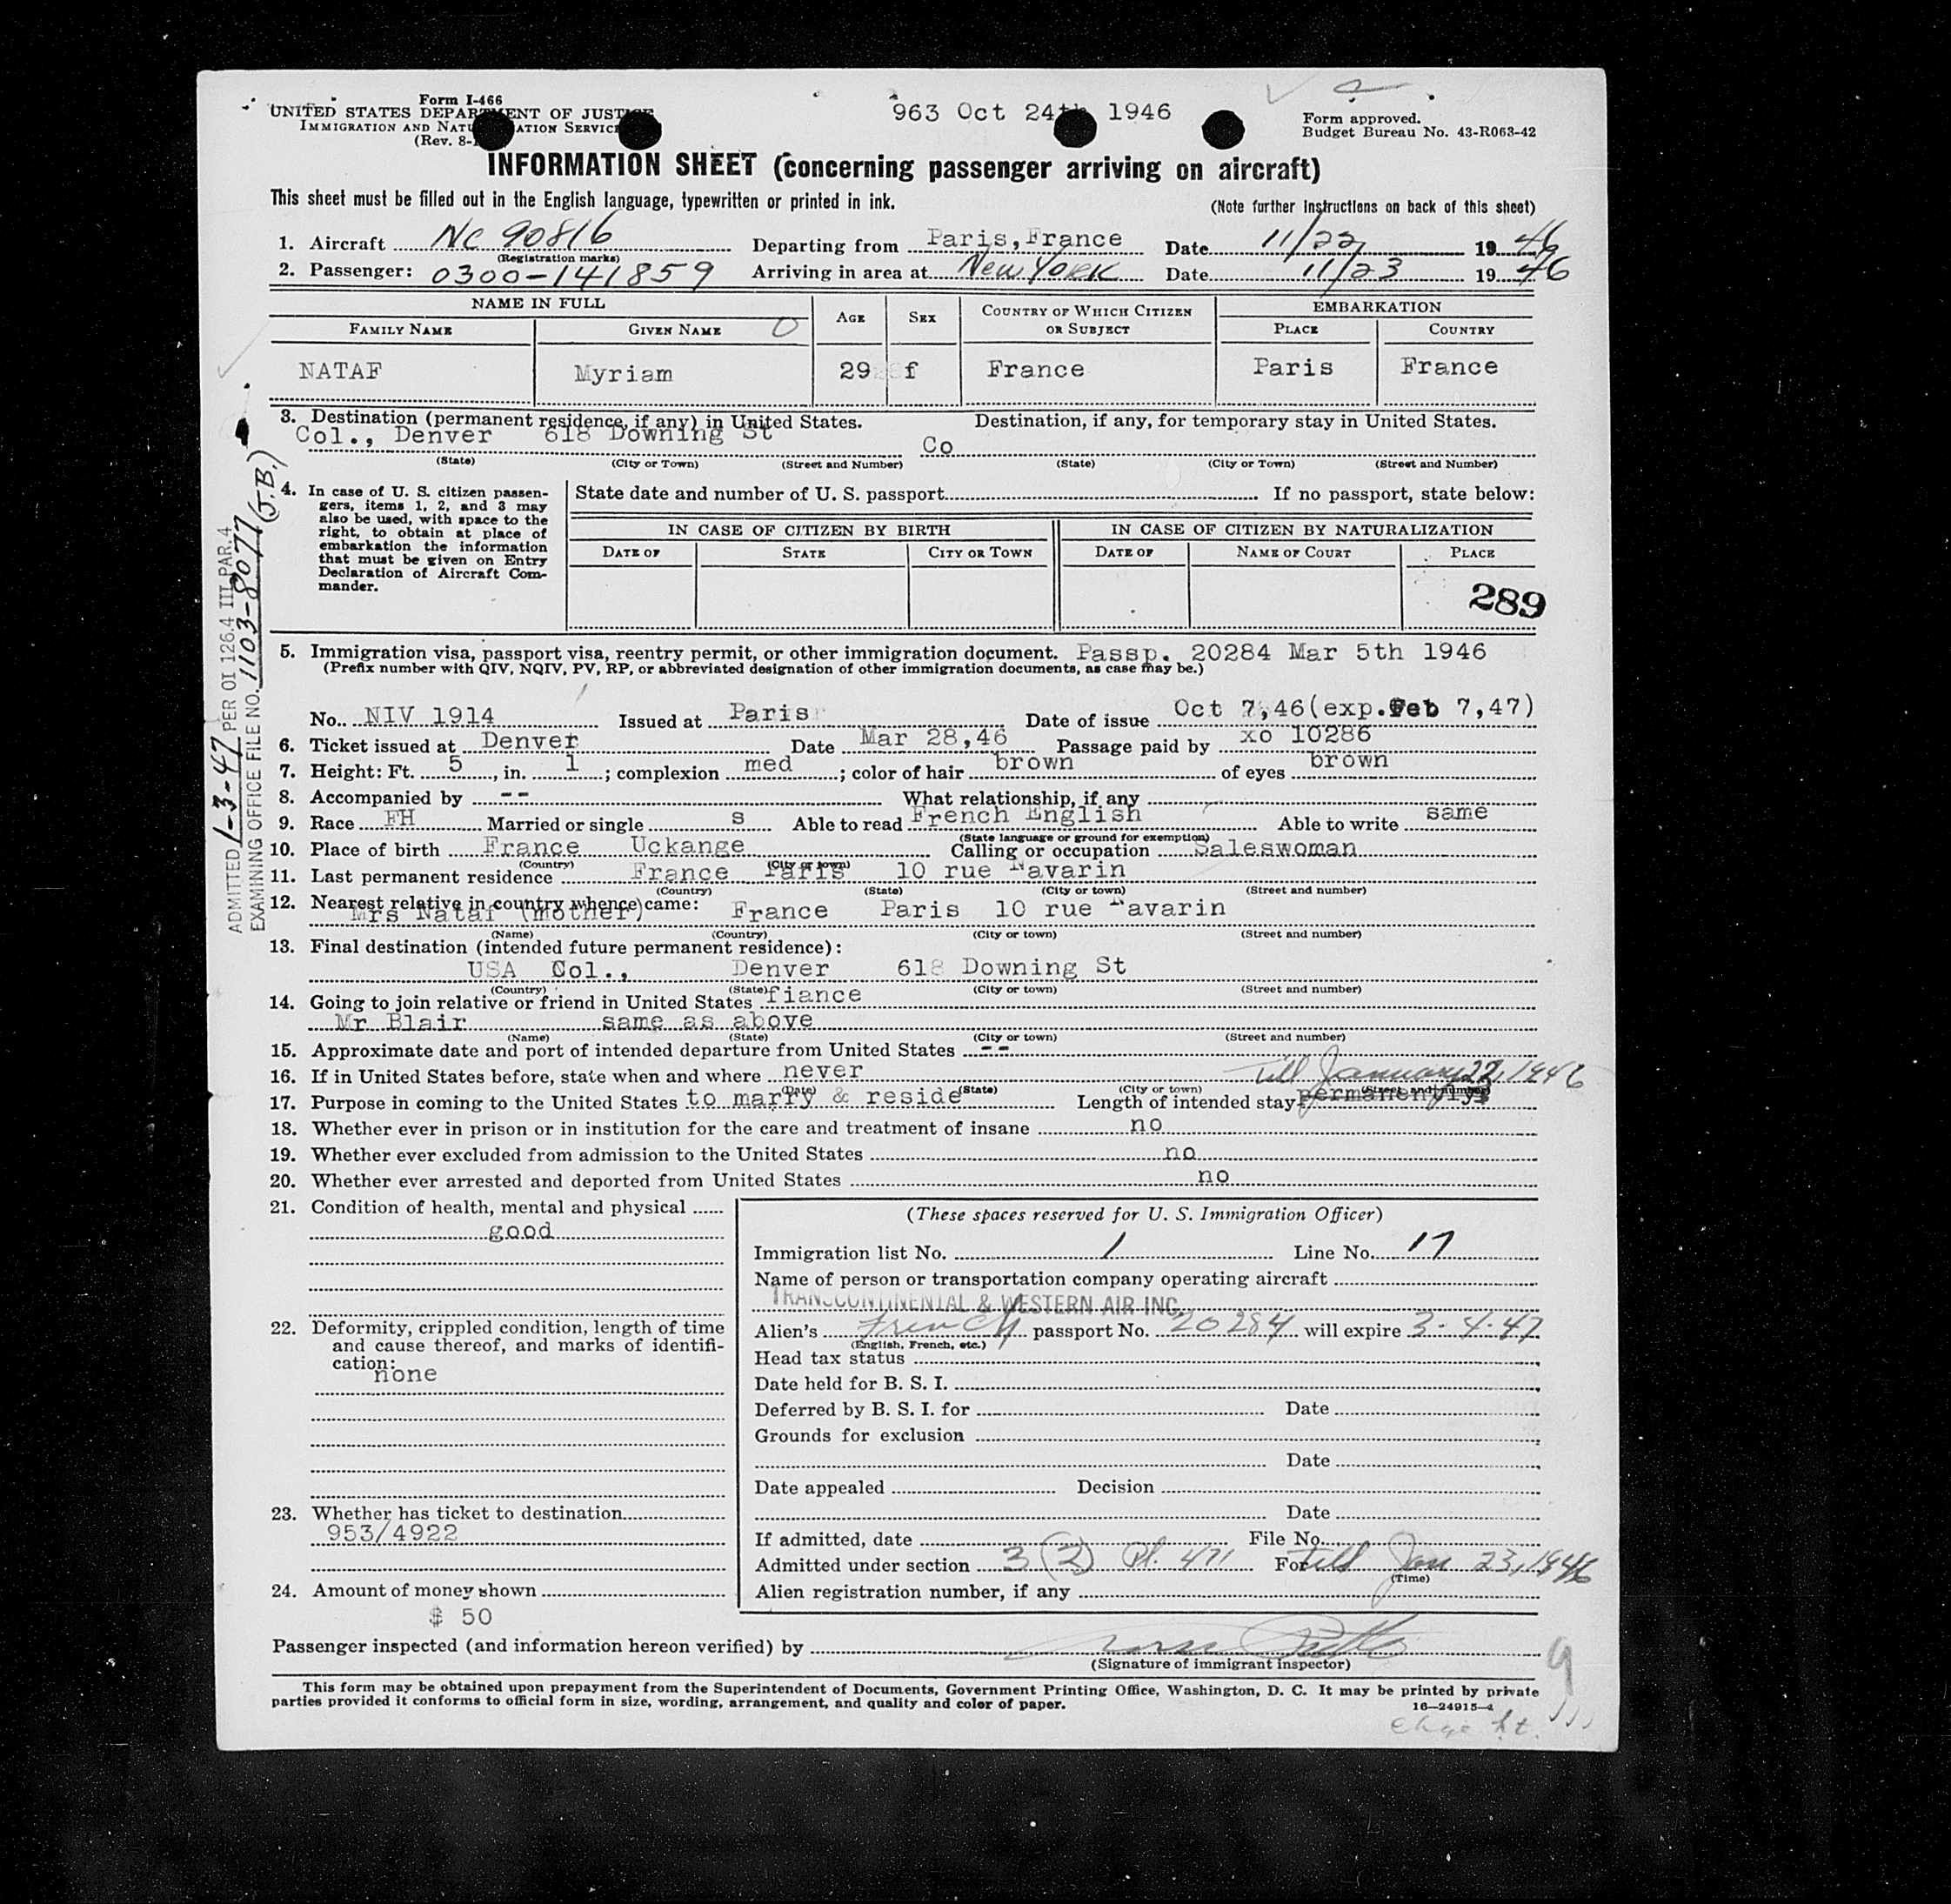 Form I-466
UNITED STATES DEPARTMENT OF JUSTICE
IMMIGRATION AND NATURALIZATION SERVICE
(Rev. 8-
963 Oct 24th 1946
Form approved.
Budget Bureau No. 43-R063-42
INFORMATION SHEET (concerning passenger arriving on aircraft)
This sheet must be filled out in the English language, typewritten or printed in ink.
(Note further instructions on back of this sheet)
1. Aircraft NC 90816 Departing from Paris, France Date 11/22 1946
(Registration marks)
2. Passenger: 0300-141859 Arriving in area at New York Date 11/23 1946
NAME IN FULL AGE SEX COUNTRY OF WHICH CITIZEN OR SUBJECT EMBARKATION
FAMILY NAME GIVEN NAME PLACE COUNTRY
NATAF Myriam 29 f France Paris France
3. Destination (permanent residence, if any) in United States. Destination, if any, for temporary stay in United States.
Col., Denver 618 Downing St Co
(State) (City or Town) (Street and Number) (State) (City or Town) (Street and Number)
4. In case of U. S. citizen passengers, items 1, 2, and 3 may also be used, with space to the right, to obtain at place of embarkation the information that must be given on Entry Declaration of Aircraft Commander.
State date and number of U. S. passport If no passport, state below:
IN CASE OF CITIZEN BY BIRTH IN CASE OF CITIZEN BY NATURALIZATION
DATE OF STATE CITY OR TOWN DATE OF NAME OF COURT PLACE
289
5. Immigration visa, passport visa, reentry permit, or other immigration document. Passp. 20284 Mar 5th 1946
(Prefix number with QIV, NQIV, PV, RP, or abbreviated designation of other immigration documents, as case may be.)
No. NIV 1914 Issued at Paris Date of issue Oct 7,46(exp.Feb 7,47)
6. Ticket issued at Denver Date Mar 28,46 Passage paid by xo 10286
7. Height: Ft. 5, in. 1; complexion med; color of hair brown of eyes brown
8. Accompanied by -- What relationship, if any
9. Race FH Married or single s Able to read French English Able to write same
(State language or ground for exemption)
10. Place of birth France Uckange Calling or occupation Saleswoman
(Country) (City or town)
11. Last permanent residence France Paris 10 rue Navarin
(Country) (State) (City or town) (Street and number)
12. Nearest relative in country whence came:
Mrs Nataf (mother) France Paris 10 rue Navarin
(Name) (Country) (City or town) (Street and number)
13. Final destination (intended future permanent residence):
USA Col., Denver 618 Downing St
(Country) (State) (City or town) (Street and number)
14. Going to join relative or friend in United States fiance
Mr Blair same as above
(Name) (State) (City or town) (Street and number)
15. Approximate date and port of intended departure from United States --
16. If in United States before, state when and where never
(Date) (State) (City or town) (Street and number)
till January 22, 1946
17. Purpose in coming to the United States to marry & reside Length of intended stay permanently
18. Whether ever in prison or in institution for the care and treatment of insane no
19. Whether ever excluded from admission to the United States no
20. Whether ever arrested and deported from United States no
21. Condition of health, mental and physical
good
22. Deformity, crippled condition, length of time and cause thereof, and marks of identification:
none
23. Whether has ticket to destination
953/4922
24. Amount of money shown
$ 50
(These spaces reserved for U. S. Immigration Officer)
Immigration list No. 1 Line No. 17
Name of person or transportation company operating aircraft
TRANSCONTINENTAL & WESTERN AIR INC.
Alien's French passport No. 20284 will expire 3-4-47
(English, French, etc.)
Head tax status
Date held for B. S. I.
Deferred by B. S. I. for Date
Grounds for exclusion
Date
Date appealed Decision
Date
If admitted, date File No.
Admitted under section 3(2) Pl. 471 For till Jan 23, 1946
(Time)
Alien registration number, if any
Passenger inspected (and information hereon verified) by
(Signature of immigrant inspector)
This form may be obtained upon prepayment from the Superintendent of Documents, Government Printing Office, Washington, D. C. It may be printed by private
parties provided it conforms to official form in size, wording, arrangement, and quality and color of paper.
16—24915-4
9
ADMITTED 1-3-47 PER OI 126.4 III PAR.4
EXAMINING OFFICE FILE NO. 1103-8077 (J.B.)